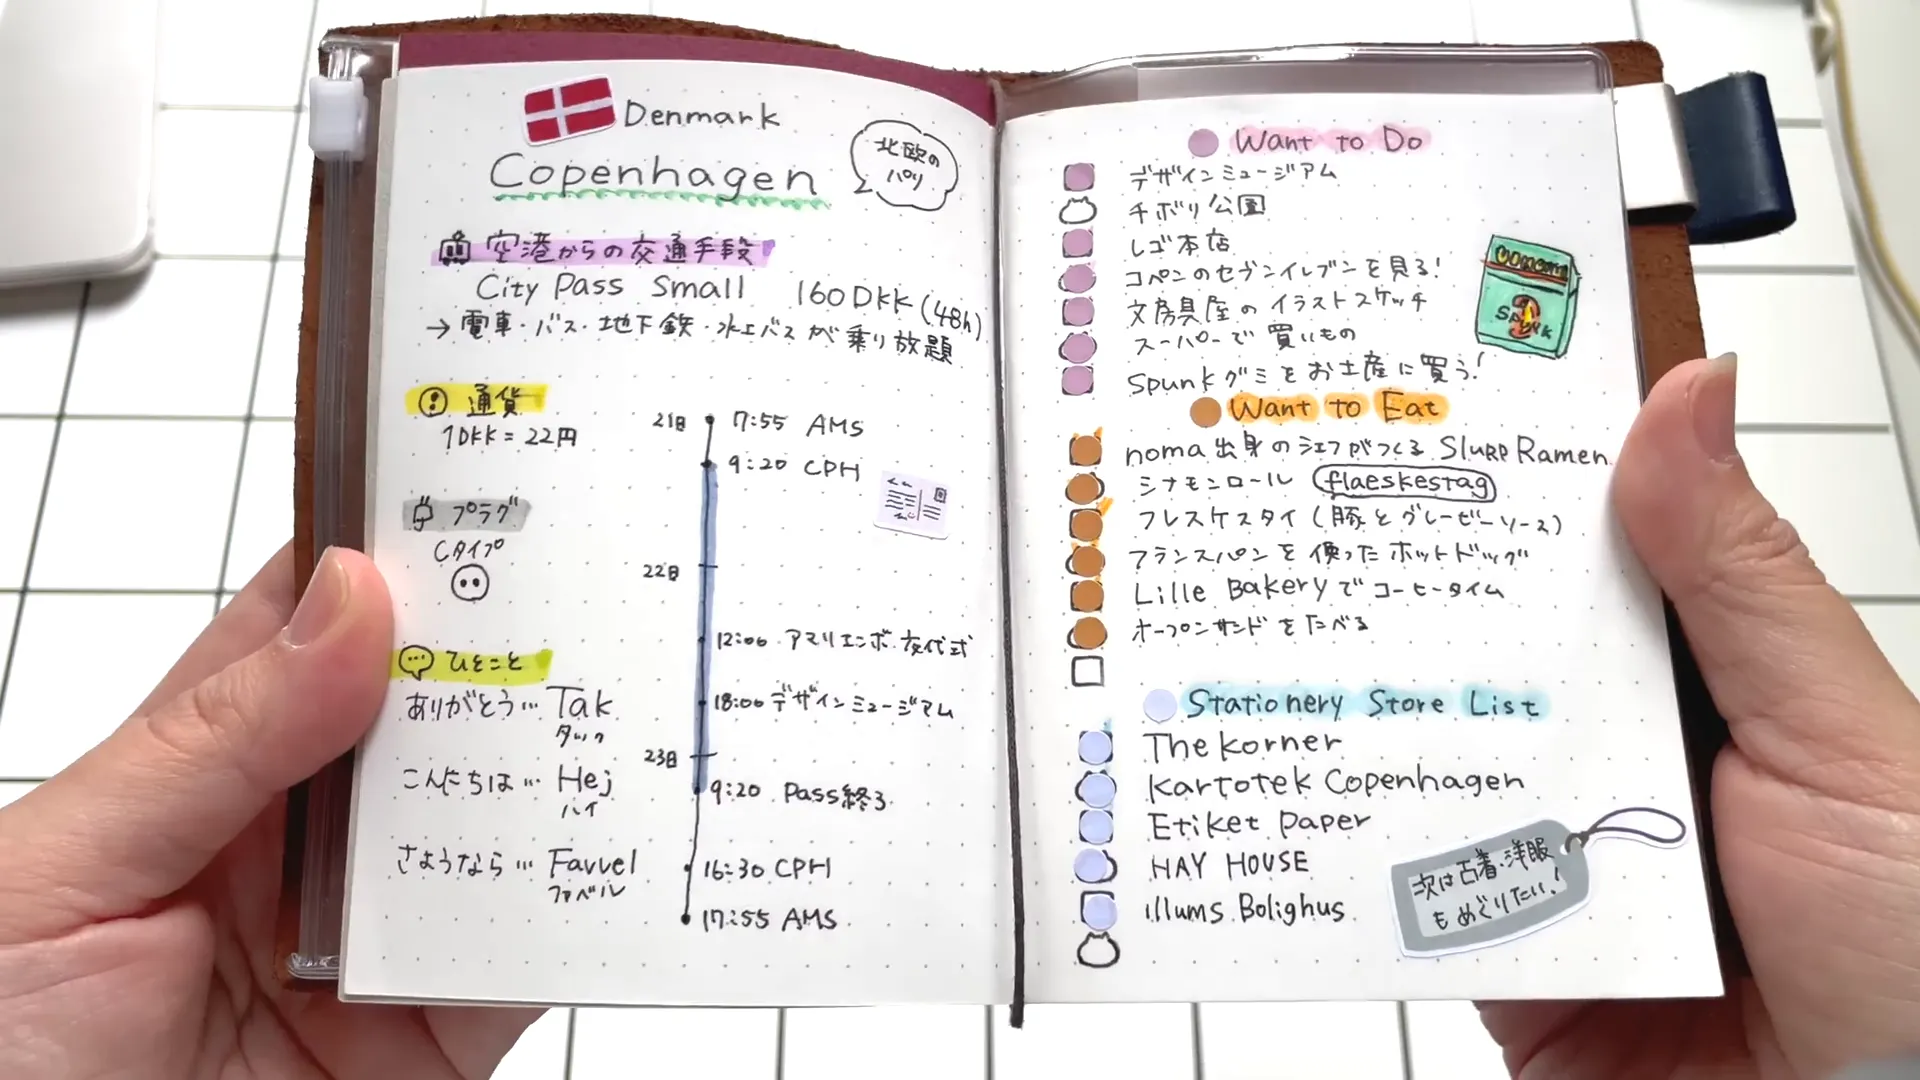 Denmark
Copenhagen
北欧の
パリ
空港からの交通手段
City Pass Small 160DKK (48h)
→ 電車・バス・地下鉄・水上バスが乗り放題
通貨
1DKK = 22円
プラグ
Cタイプ
ひとこと
ありがとう… Tak
タック
こんにちは… Hej
ハイ
さようなら… Farvel
ファベル
21日 7:55 AMS
9:20 CPH
22日
12:00 アマリエンボー交代式
18:00 デザインミュージアム
23日
9:20 Pass終了
16:30 CPH
17:55 AMS
Want to Do
デザインミュージアム
チボリ公園
レゴ本店
コペンのセブンイレブンを見る!
文房具屋のイラストスケッチ
スーパーで買いもの
Spunkグミをお土産に買う!
SPUNK
Want to Eat
noma出身のシェフがつくる Slurp Ramen
シナモンロール flaeskestag
フレスケスタイ (豚とグレービーソース)
フランスパンを使ったホットドッグ
Lille Bakeryでコーヒータイム
オープンサンドをたべる
Stationery Store List
The Korner
Kartotek Copenhagen
Etiket Paper
HAY HOUSE
illums Bolighus
次は古着・洋服
もめぐりたい!